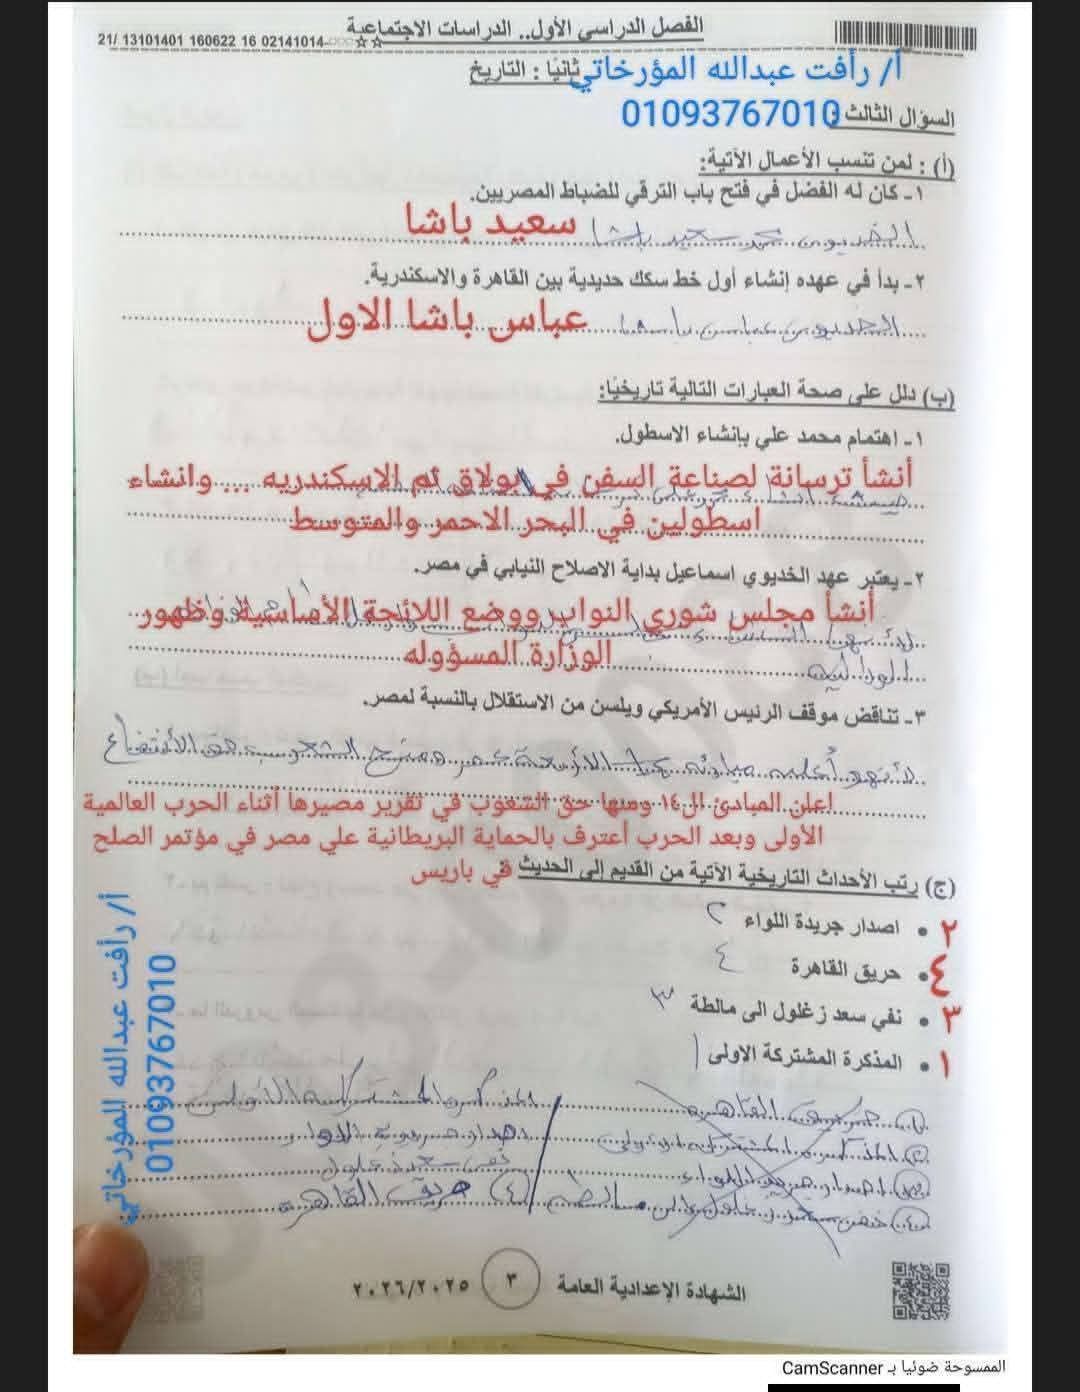 الفصل الدراسي الأول.. الدراسات الاجتماعية
21/ 13101401 160622 16 02141014-○○○☆☆
أ/ رأفت عبدالله المؤرخاتي
ثانيًا : التاريخ
01093767010
السؤال الثالث :
(أ) : لمن تنسب الأعمال الآتية:
١- كان له الفضل في فتح باب الترقي للضباط المصريين.
الخديوي محمد سعيد باشا
سعيد باشا
٢- بدأ في عهده إنشاء أول خط سكك حديدية بين القاهرة والاسكندرية.
الخديوي عباس باشا
عباس باشا الاول
(ب) دلل على صحة العبارات التالية تاريخيًا:
١- اهتمام محمد علي بإنشاء الاسطول.
أنشأ ترسانة لصناعة السفن في بولاق ثم الاسكندريه ... وانشاء
اسطولين في البحر الاحمر والمتوسط
٢- يعتبر عهد الخديوي اسماعيل بداية الاصلاح النيابي في مصر.
أنشأ مجلس شوري النواب ووضع اللائحة الأساسية وظهور
الوزارة المسؤوله
٣- تناقض موقف الرئيس الأمريكي ويلسن من الاستقلال بالنسبة لمصر.
اعلن المبادئ ال١٤ ومنها حق الشعوب في تقرير مصيرها أثناء الحرب العالمية
الأولى وبعد الحرب أعترف بالحماية البريطانية علي مصر في مؤتمر الصلح
في باريس
(ج) رتب الأحداث التاريخية الآتية من القديم إلى الحديث
٢ • اصدار جريدة اللواء ٢
٤ • حريق القاهرة ٤
٣ • نفي سعد زغلول الى مالطة ٣
١ • المذكرة المشتركة الاولى ١
١) حريق القاهرة
المذكرة المشتركة الأولى
٢) المذكرة المشتركة الاولى
اصدار جريدة اللواء
٣) اصدار جريدة اللواء
نفي سعد زغلول
٤) نفي سعد زغلول إلى مالطة
٤) حريق القاهرة
أ/ رأفت عبدالله المؤرخاتي
01093767010
الشهادة الإعدادية العامة ٣ ٢٠٢٦/٢٠٢٥
الممسوحة ضوئيا بـ CamScanner